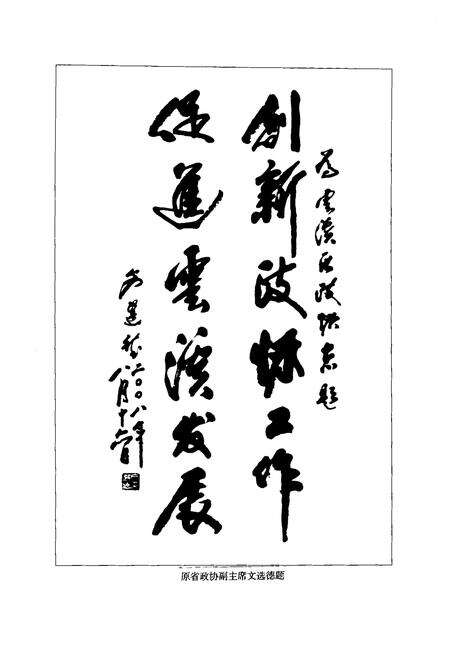 为云溪区政协志题
创新政协工作
促進雲溪发展
文选德二〇〇八年
八月十六日
原省政协副主席文选德题